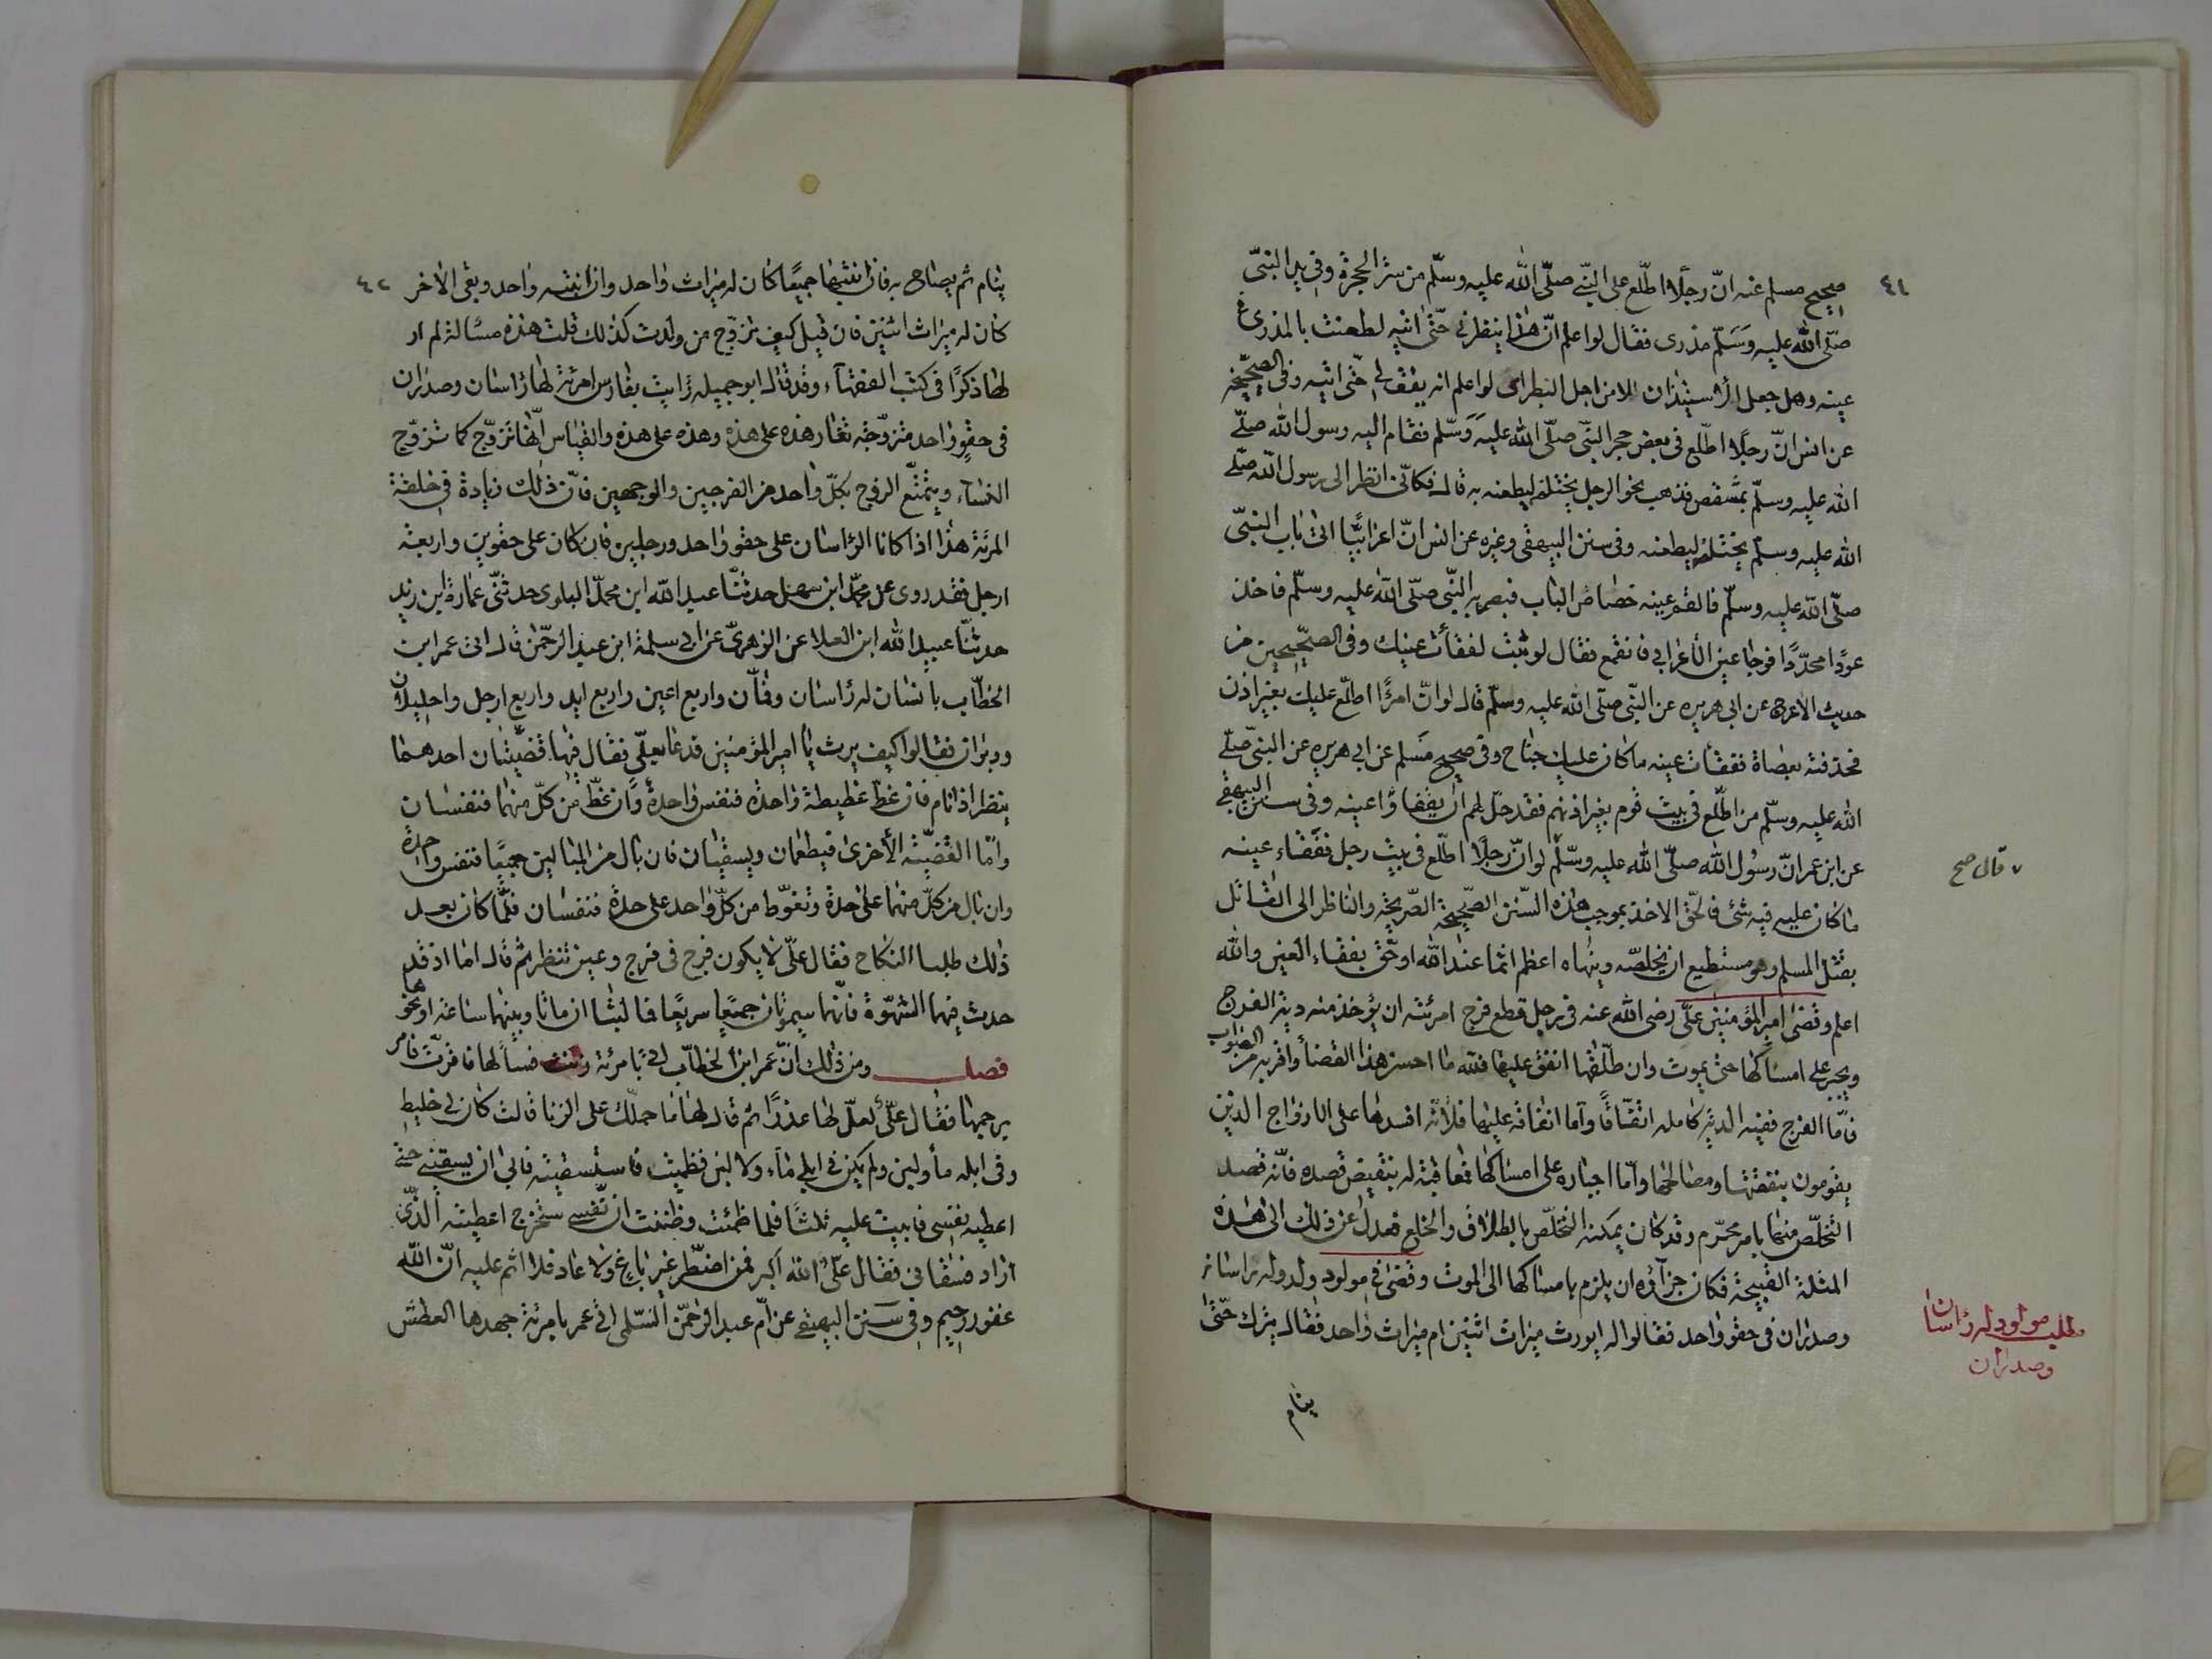 ٤١
صحيح مسلم عنه انّ رجلًا اطّلع على النبّي صلّى الله عليه وسلّم من ستر الحجرة وفي يد النبّي
صلّى الله عليه وَسَلّم مذرى فقال لو اعلم انّ هذا ينظرني حتّى اتيه لطعنت بالمذرى في
عينه وهل جعل الأستيذان الا من اجل البطراى لو اعلم انه يقف لي حتّى اتيه وفي الصحيحين
عن انس انّ رجلًا اطّلع في بعض حجر النبّي صلّى الله عليه وَسَلّم فقام اليه رسول الله صلّى
الله عليه وسلّم بمشقص فذهب نحو الرجل يختله ليطعنه به قال فكانّي انظر الى رسول الله صلّى
الله عليه وسلّم يختله ليطعنه وفي سنن البيهقي وغيره عن انس انّ اعرابيًّا اتى باب النبّي
صلّى الله عليه وسلّم فالقم عينه خصاص الباب فبصر به النبّي صلّى الله عليه وسلّم فاخذ
عودًا محدّدًا فوجا عين الأعرابي فانقمع فقال لو ثبت لفقأت عينك وفي الصحيحين من
حديث الاعرج عن ابي هريره عن النبّي صلّى الله عليه وسلّم قال لو انّ امرءًا اطلّع عليك بغير اذن
فحذفته بعصاة ففقأت عينه ما كان عليك جناح وفي صحيح مسلم عن ابي هريره عن النبّي صلّى
الله عليه وسلّم من اطّلع في بيت قوم بغير اذنهم فقد حلّ لهم ان يفقاؤا عينه وفي سنن البيهقي
عن ابن عمر انّ رسُول الله صلّى الله عليه وسّلم لو انّ رجلًا اطّلع في بيت رجل ففقاء عينه
٧ قال صح
ما كان عليه فيه شئ فالحق الاخذ بموجب هذه السّنن الصّحيحة الصّريحة والناظر الى القاتل
بقتل المسلم وهو مستطيع ان يخلصّه وينهاه اعظم اثما عند الله او حّق بفقاء العين والله
اعلم وقضى امير المؤمنين علّي رضي الله عنه في رجل قطع فرج امرئته ان يؤخذ منه دية الفرج
ويجبر على امساكها حتى يموت وان طلّقها انفق عليها فلله ما احسن هذا القضأ واقربه من الصواب
فامّا الفرج ففيه الدية كامله اتّفاقًا وامّا انفاقه عليها فلأنّه افسدها على الازواج الذين
يقومون بنفقتها ومصالحها وامّا اجباره على امساكها فمعاقبة له بنقيض قصده فانّه قصد
التخلّص منها بامر محرّم وقد كان يمكنه التخلّص بالطلاق والخلع فعدل عن ذلك الى هذه
المثلة القبيحة فكان جزآؤه ان يلزم بامساكها الى الموت وقضى في مولود ولد وله راسان
مطلب مولود له رأسان
وصدران
وصدران في حقو واحد فقالوا له ايورث ميراث اثنين ام ميراث واحد فقال يترك حتّى
ينام
٤٢
ينام ثم يصاح به فان انتبها جميعًا كان له ميراث واحد وان انتبه واحد وبقى الاخر
كان له ميراث اثنين فان قيل كيف تزوّج من ولدت كذلك قلت هذه مسالة لم ار
لها ذكرًا في كتب الفقهآء وقد قال ابو جميله رأيت بفارس امرئة لها رأسان وصدران
في حقو واحد متزوّجة تغار هذه على هذه وهذه على هذه والقياس انّها تزوّج كما تزوّج
النسآء ويتمتّع الزوج بكلّ واحد من الفرجين والوجهين فانّ ذلك زيادة في خلقة
المرئة هذا اذا كانا الرأسان على حقو واحد ورجلين فان كان على حقوين واربعة
ارجل فقد روى عن محمّد ابن سهل حدثنّا عبد الله ابن محمّد البلوى حدثنّي عمارة ابن زيد
حدثنّا عبيد الله ابن العلا عن الزهرى عن ابي سلمة ابن عبد الرحمّن قال اتى عمر ابن
الخطّاب بانسان له رأسان وفمان واربع اعين واربع ايد واربع ارجل واحليلان
ودبران فقالوا كيف يرث يا امير المؤمنين فدعا بعلّي فقال فيها قضيّتان احدهما
ينظر اذا نام فان غطّ غطيطة واحدة فنفس واحدة وان غطّ من كلّ منهما فنفسان
وامّا القضيّة الأخرى فيطعمان ويسقيان فان بال من المبالين جميعًا فنفس واحدة
وان بال من كلّ منهما على حدة وتغوّط من كلّ واحد على حدة فنفسان فلّما كان بعد
ذلك طلبا النكاح فقال علّي لا يكون فرج في فرج وعين تنظر ثم قال اما اذ قد
حدثت فيهما الشهوة فانّهما سيموتان جميعًا سريعًا فما لبثا ان ماتا وبينهما ساعة او نحوها
فصل ومن ذلك انّ عمر ابن الخطاّب اتى بامرئة زنت فسألها فاقرّت فامر
برجمها فقال علّي لعلّ لها عذرًا ثم قال لها ما حملك على الزنا قالت كان لي خليط
وفي ابله مأ ولبن ولم يكن في ابلي مآء ولا لبن فظميت فاستسقيته فابى ان يسقيني حتى
اعطيه نفسي فابيت عليه ثلثًا فلما ظمئت وظننت ان نفّسي ستخرج اعطيته الّذي
اراد فسقاني فقال علّي الله اكبر فمن اضطّر غير باغ ولا عاد فلا اثم عليه انّ الله
غفور رحيم وفي سنن البيهقي عن ابي عبد الرحمّن السّلمي اتى عمر بامرئة جهدها العطش